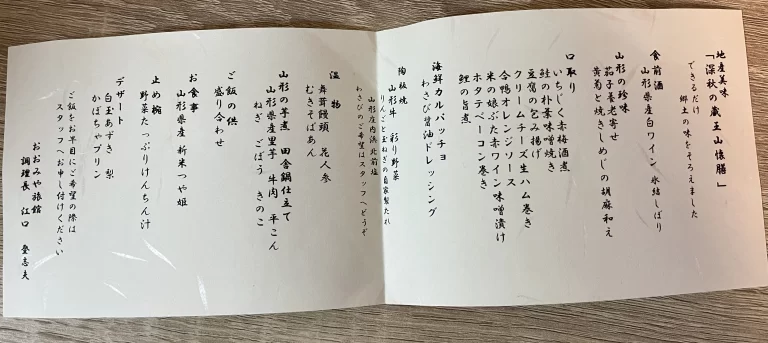 地産美味
「深秋の蔵王山懐膳」
できるだけ
郷土の味をそろえました
食前酒
山形県産白ワイン 氷結しぼり
山形の珍味
茄子養老寄せ
黄菊と焼きしめじの胡麻和え
口取り
いちじく赤梅酒煮
鮭の朴葉味噌焼き
豆腐の包み揚げ
クリームチーズ生ハム巻き
合鴨オレンジソース
米の娘ぶた赤ワイン味噌漬け
ホタテベーコン巻き
鯉の旨煮
海鮮カルパッチョ
わさび醤油ドレッシング
陶板焼
山形牛 彩り野菜
りんごと玉ねぎの自家製たれ
山形庄内浜 北前塩
わさびのご希望はスタッフへどうぞ
温物
舞茸饅頭 花人参
むきそばあん
山形の芋煮 田舎鍋仕立て
山形県産里芋 牛肉 平こん
ねぎ ごぼう きのこ
ご飯の供
盛り合わせ
お食事
山形県産 新米つや姫
止め椀
野菜たっぷりけんちん汁
デザート
白玉あずき 梨
かぼちゃプリン
ご飯をお早目にご希望の際は
スタッフへお申し付けください
おおみや旅館
調理長 江口 登志夫